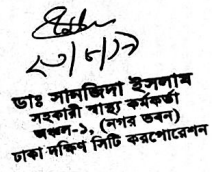 ২০/৮/১৯
ডাঃ সানজিদা ইসলাম
সহকারী স্বাস্থ্য কর্মকর্তা
অঞ্চল-১, (নগর ভবন)
ঢাকা দক্ষিণ সিটি করপোরেশন